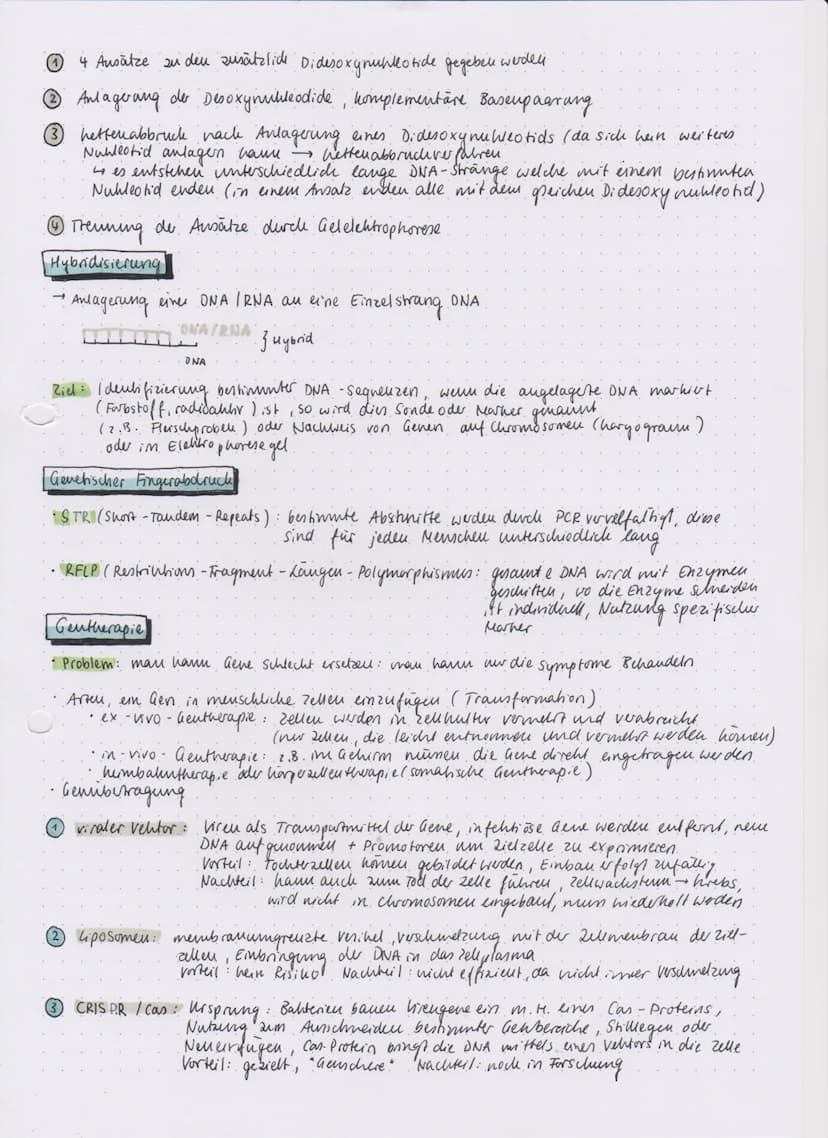 ① 4 Ansätze zu den zusätzlich Didesoxynukleotide gegeben werden
② Anlagerung der Desoxynukleodide, komplementäre Basenpaarung
③ Kettenabbruch nach Anlagerung eines Didesoxynukleotids (da sich kein weiteres
Nukleotid anlagern kann → Kettenabbruchverfahren
↳ es entstehen unterschiedlich lange DNA-Stränge welche mit einem bestimmten
Nukleotid enden (in einem Ansatz enden alle mit dem gleichen Didesoxynukleotid)
④ Trennung der Ansätze durch Gelelektrophorese
Hybridisierung
→ Anlagerung einer DNA/RNA an eine Einzelstrang DNA
DNA/RNA
} Hybrid
DNA
Ziel: Identifizierung bestimmter DNA-Sequenzen, wenn die angelagerte DNA markiert
(Farbstoff, radioaktiv) ist, so wird dies Sonde oder Marker genannt
(z.B. Fleischproben) oder Nachweis von Genen auf Chromosomen (Karyogramm)
oder im Elektrophoresegel
Genetischer Fingerabdruck
· STR (Short-Tandem-Repeats): bestimmte Abschnitte werden durch PCR vervielfältigt, diese
sind für jeden Menschen unterschiedlich lang
· RFLP (Restriktions-Fragment-Längen-Polymorphismus: gesamte DNA wird mit Enzymen
geschnitten, wo die Enzyme schneiden
ist individuell, Nutzung spezifischer
Marker
Gentherapie
· Problem: man kann Gene schlecht ersetzen: man kann nur die Symptome Behandeln
· Arten, ein Gen in menschliche Zellen einzufügen (Transformation)
· ex-vivo-Gentherapie: Zellen werden in Zellkultur vermehrt und verabreicht
(nur Zellen, die leicht entnommen und vermehrt werden können)
· in-vivo-Gentherapie: z.B. im Gehirn müssen die Gene direkt eingetragen werden
· Keimbahntherapie oder Körperzellentherapie (somatische Gentherapie)
· Genübertragung
① viraler Vektor: Viren als Transportmittel der Gene, infektiöse Gene werden entfernt, neue
DNA aufgenommen + Promotoren um Zielzelle zu exprimieren
Vorteil: Tochterzellen können gebildet werden, Einbau erfolgt zufällig
Nachteil: kann auch zum Tod der Zelle führen, Zellwachstum → Krebs,
wird nicht in Chromosomen eingebaut, muss wiederholt werden
② Liposomen: membranumgrenzte Vesikel, Verschmelzung mit der Zellmembran der Ziel-
zellen, Einbringung der DNA in das Zellplasma
Vorteil: kein Risiko Nachteil: nicht effizient, da nicht immer Verschmelzung
③ CRISPR/Cas: Ursprung: Bakterien bauen Virengene ein m.H. eines Cas-Proteins,
Nutzung zum Ausschneiden bestimmter Genbereiche, Stilllegen oder
Neueinfügen, Cas-Protein bringt die DNA mittels eines Vektors in die Zelle
Vorteil: gezielt, "Genschere" Nachteil: noch in Forschung